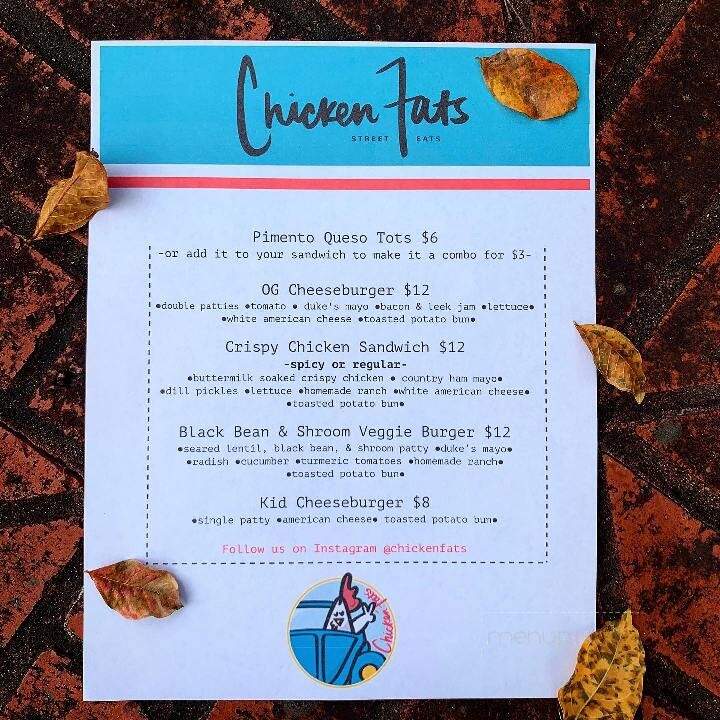 Chicken Fats
STREET EATS
Pimento Queso Tots $6
-or add it to your sandwich to make it a combo for $3-
OG Cheeseburger $12
•double patties •tomato • duke's mayo •bacon & leek jam •lettuce•
•white american cheese •toasted potato bun•
Crispy Chicken Sandwich $12
-spicy or regular-
•buttermilk soaked crispy chicken • country ham mayo•
•dill pickles •lettuce •homemade ranch •white american cheese•
•toasted potato bun•
Black Bean & Shroom Veggie Burger $12
•seared lentil, black bean, & shroom patty •duke's mayo•
•radish •cucumber •turmeric tomatoes •homemade ranch•
•toasted potato bun•
Kid Cheeseburger $8
•single patty •american cheese• toasted potato bun•
Follow us on Instagram @chickenfats
Chicken Fats